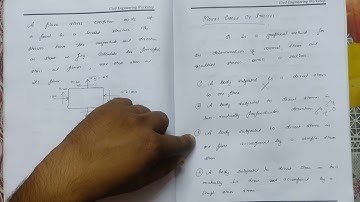 Civil Engineering Workshop
A plane stress condition exists at
a point in a loaded structure. The
stresses have the magnitude and direction
shown in fig. Calculate the principal
stress and planes, and then stress on
its plane.
Civil Engineering Workshop
MOHR'S CIRCLE OF STRESSES
It is a graphical method for
the determination of normal, shear and
resultant stress across a section.
① A body subjected to a direct stress
in one plane.
② A body subjected to direct stresses in
two mutually perpendicular directions.
③ A body subjected to direct stress in
one plane accompanied by a simple shear
stress.
④ A body subjected to direct stress in two
mutually and accompanied by a
simple shear stress.